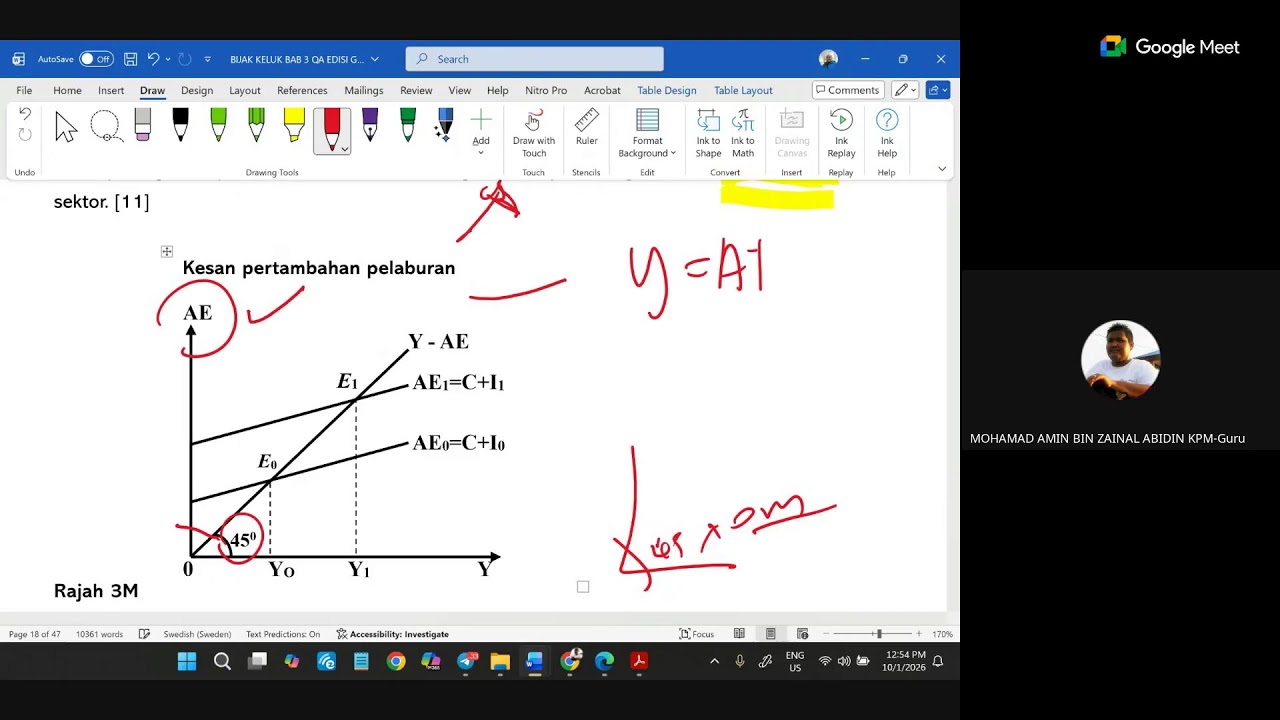 AutoSave Off BIJAK KELUK BAB 3 QA EDISI G... Search
File Home Insert Draw Design Layout References Mailings Review View Help Nitro Pro Acrobat Table Design Table Layout Comments
Add Draw with Touch Ruler Format Background Ink to Shape Ink to Math Drawing Canvas Ink Replay Ink Help
Undo Drawing Tools Touch Stencils Edit Convert Insert Replay Help
sektor. [11]
Kesan pertambahan pelaburan
AE
Y - AE
E1
AE1=C+I1
AE0=C+I0
E0
45⁰
0 YO Y1 Y
Rajah 3M
Page 18 of 47 10361 words Swedish (Sweden) Text Predictions: On Accessibility: Investigate Focus 170%
33 ENG US 12:54 PM 10/1/2026
Google Meet
MOHAMAD AMIN BIN ZAINAL ABIDIN KPM-Guru